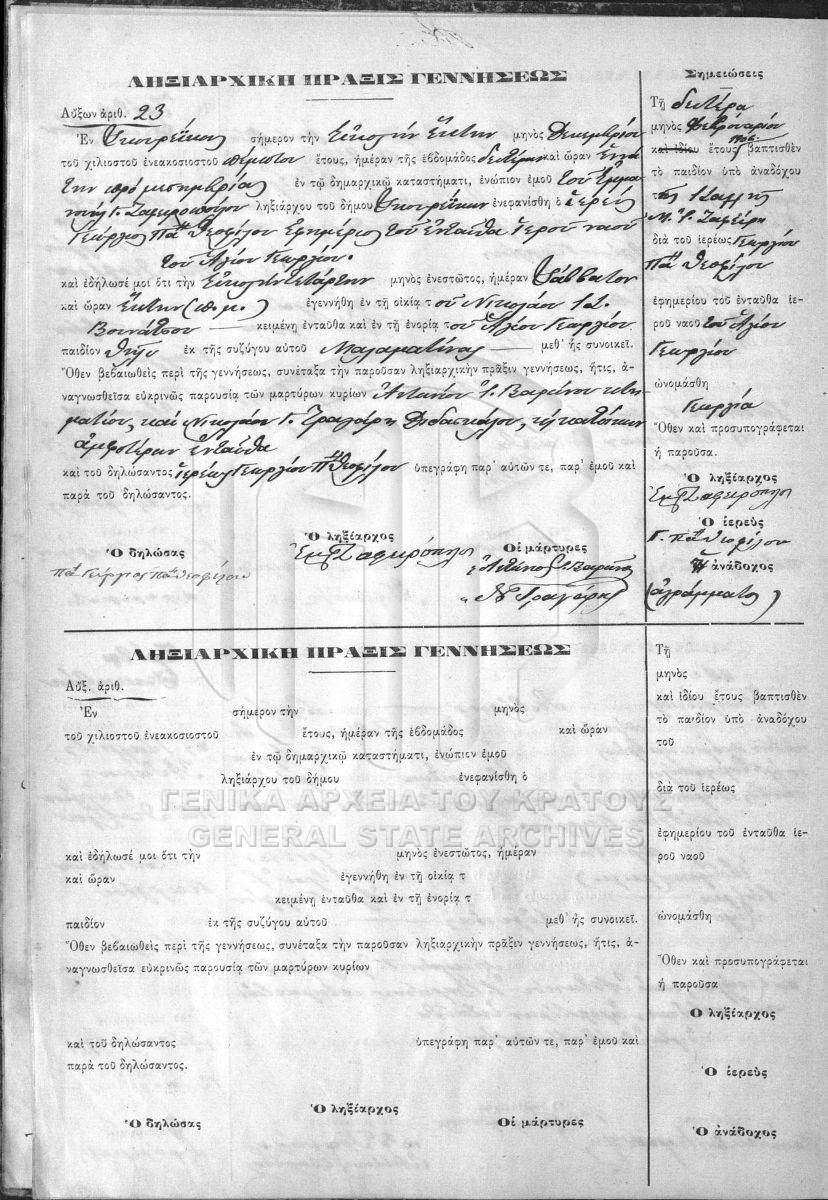 ΛΗΞΙΑΡΧΙΚΗ ΠΡΑΞΙΣ ΓΕΝΝΗΣΕΩΣ
Αὔξων ἀριθ. 23
Ἐν σήμερον τὴν Εἰκοστὴν Ἕκτην μηνὸς Δεκεμβρίου
τοῦ χιλιοστοῦ ἐνεακοσιοστοῦ πέμπτου ἔτους, ἡμέραν τῆς ἑβδομάδος Δευτέραν καὶ ὥραν Ἐννά
την πρὸ μεσημβρίας ἐν τῷ δημαρχικῷ καταστήματι, ἐνώπιον ἐμοῦ τοῦ Ἐμμα
νουὴλ Γ. Ζαφειροπούλου ληξιάρχου τοῦ δήμου ἐνεφανίσθη ὁ ἱερεὺς
Γεώργιος Πα Θεοφίλου Ἐφημέριος τοῦ ἐνταῦθα Ἱεροῦ ναοῦ
τοῦ Ἁγίου Γεωργίου.
καὶ ἐδήλωσέ μοι ὅτι τὴν Εἰκοστὴν Τετάρτην μηνὸς ἐνεστῶτος, ἡμέραν Σάββατον
καὶ ὥραν Ἕκτην (π.μ.) ἐγεννήθη ἐν τῇ οἰκίᾳ τοῦ Νικολάου
κειμένῃ ἐνταῦθα καὶ ἐν τῇ ἐνορίᾳ τοῦ Ἁγίου Γεωργίου
παιδίον θῆλυ ἐκ τῆς συζύγου αὐτοῦ Μαλαματένιας μεθ᾽ ἧς συνοικεῖ.
Ὅθεν βεβαιωθεὶς περὶ τῆς γεννήσεως, συνέταξα τὴν παροῦσαν ληξιαρχικὴν πρᾶξιν γεννήσεως, ἥτις, ἀ-
ναγνωσθεῖσα εὐκρινῶς παρουσίᾳ τῶν μαρτύρων κυρίων Ἀντωνίου Βαμβίνου κτη
ματίου, καὶ Νικολάου Γ. Τραγάρη Διδασκάλου, κατοίκων
ἀμφοτέρων ἐνταῦθα
καὶ τοῦ δηλώσαντος ἱερέως Γεωργίου Πα Θεοφίλου ὑπεγράφη παρ᾽ αὐτῶν τε, παρ᾽ ἐμοῦ καὶ
παρὰ τοῦ δηλώσαντος.
Ὁ δηλώσας
Ὁ ληξίαρχος
Οἱ μάρτυρες
Πα Γεώργιος Πα Θεοφίλου
Ἐμ Γ Ζαφειρόπουλος
Ν Γ Τραγάρης
Σημειώσεις
Τῇ δευτέρᾳ
μηνὸς Φεβρουαρίου
καὶ ἰδίου ἔτους 1906 βαπτισθὲν
τὸ παιδίον ὑπὸ ἀναδόχου
τῆς
Μ. Γ. Ζαφείρη
διὰ τοῦ ἱερέως Γεωργίου
Πα Θεοφίλου
ἐφημερίου τοῦ ἐνταῦθα ἱε-
ροῦ ναοῦ τοῦ Ἁγίου
Γεωργίου
ὠνομάσθη
Γεωργία
Ὅθεν καὶ προσυπογράφεται
ἡ παροῦσα.
Ὁ ληξίαρχος
Ἐμ Γ Ζαφειρόπουλος
Ὁ ἱερεὺς
Γ. Πα Θεοφίλου
Ἡ ἀνάδοχος
(ἀγράμματος)
ΛΗΞΙΑΡΧΙΚΗ ΠΡΑΞΙΣ ΓΕΝΝΗΣΕΩΣ
Αὔξ. ἀριθ.
Ἐν σήμερον τὴν μηνὸς
τοῦ χιλιοστοῦ ἐνεακοσιοστοῦ ἔτους, ἡμέραν τῆς ἑβδομάδος καὶ ὥραν
ἐν τῷ δημαρχικῷ καταστήματι, ἐνώπιον ἐμοῦ
ληξιάρχου τοῦ δήμου ἐνεφανίσθη ὁ
ΓΕΝΙΚΑ ΑΡΧΕΙΑ ΤΟΥ ΚΡΑΤΟΥΣ
GENERAL STATE ARCHIVES
καὶ ἐδήλωσέ μοι ὅτι τὴν μηνὸς ἐνεστῶτος, ἡμέραν
καὶ ὥραν ἐγεννήθη ἐν τῇ οἰκίᾳ τ
κειμένῃ ἐνταῦθα καὶ ἐν τῇ ἐνορίᾳ τ
παιδίον ἐκ τῆς συζύγου αὐτοῦ μεθ᾽ ἧς συνοικεῖ.
Ὅθεν βεβαιωθεὶς περὶ τῆς γεννήσεως, συνέταξα τὴν παροῦσαν ληξιαρχικὴν πρᾶξιν γεννήσεως, ἥτις, ἀ-
ναγνωσθεῖσα εὐκρινῶς παρουσίᾳ τῶν μαρτύρων κυρίων
καὶ τοῦ δηλώσαντος ὑπεγράφη παρ᾽ αὐτῶν τε, παρ᾽ ἐμοῦ καὶ
παρὰ τοῦ δηλώσαντος.
Ὁ δηλώσας
Ὁ ληξίαρχος
Οἱ μάρτυρες
Τῇ
μηνὸς
καὶ ἰδίου ἔτους βαπτισθὲν
τὸ παιδίον ὑπὸ ἀναδόχου
τοῦ
διὰ τοῦ ἱερέως
ἐφημερίου τοῦ ἐνταῦθα ἱε-
ροῦ ναοῦ
ὠνομάσθη
Ὅθεν καὶ προσυπογράφεται
ἡ παροῦσα
Ὁ ληξίαρχος
Ὁ ἱερεὺς
Ὁ ἀνάδοχος